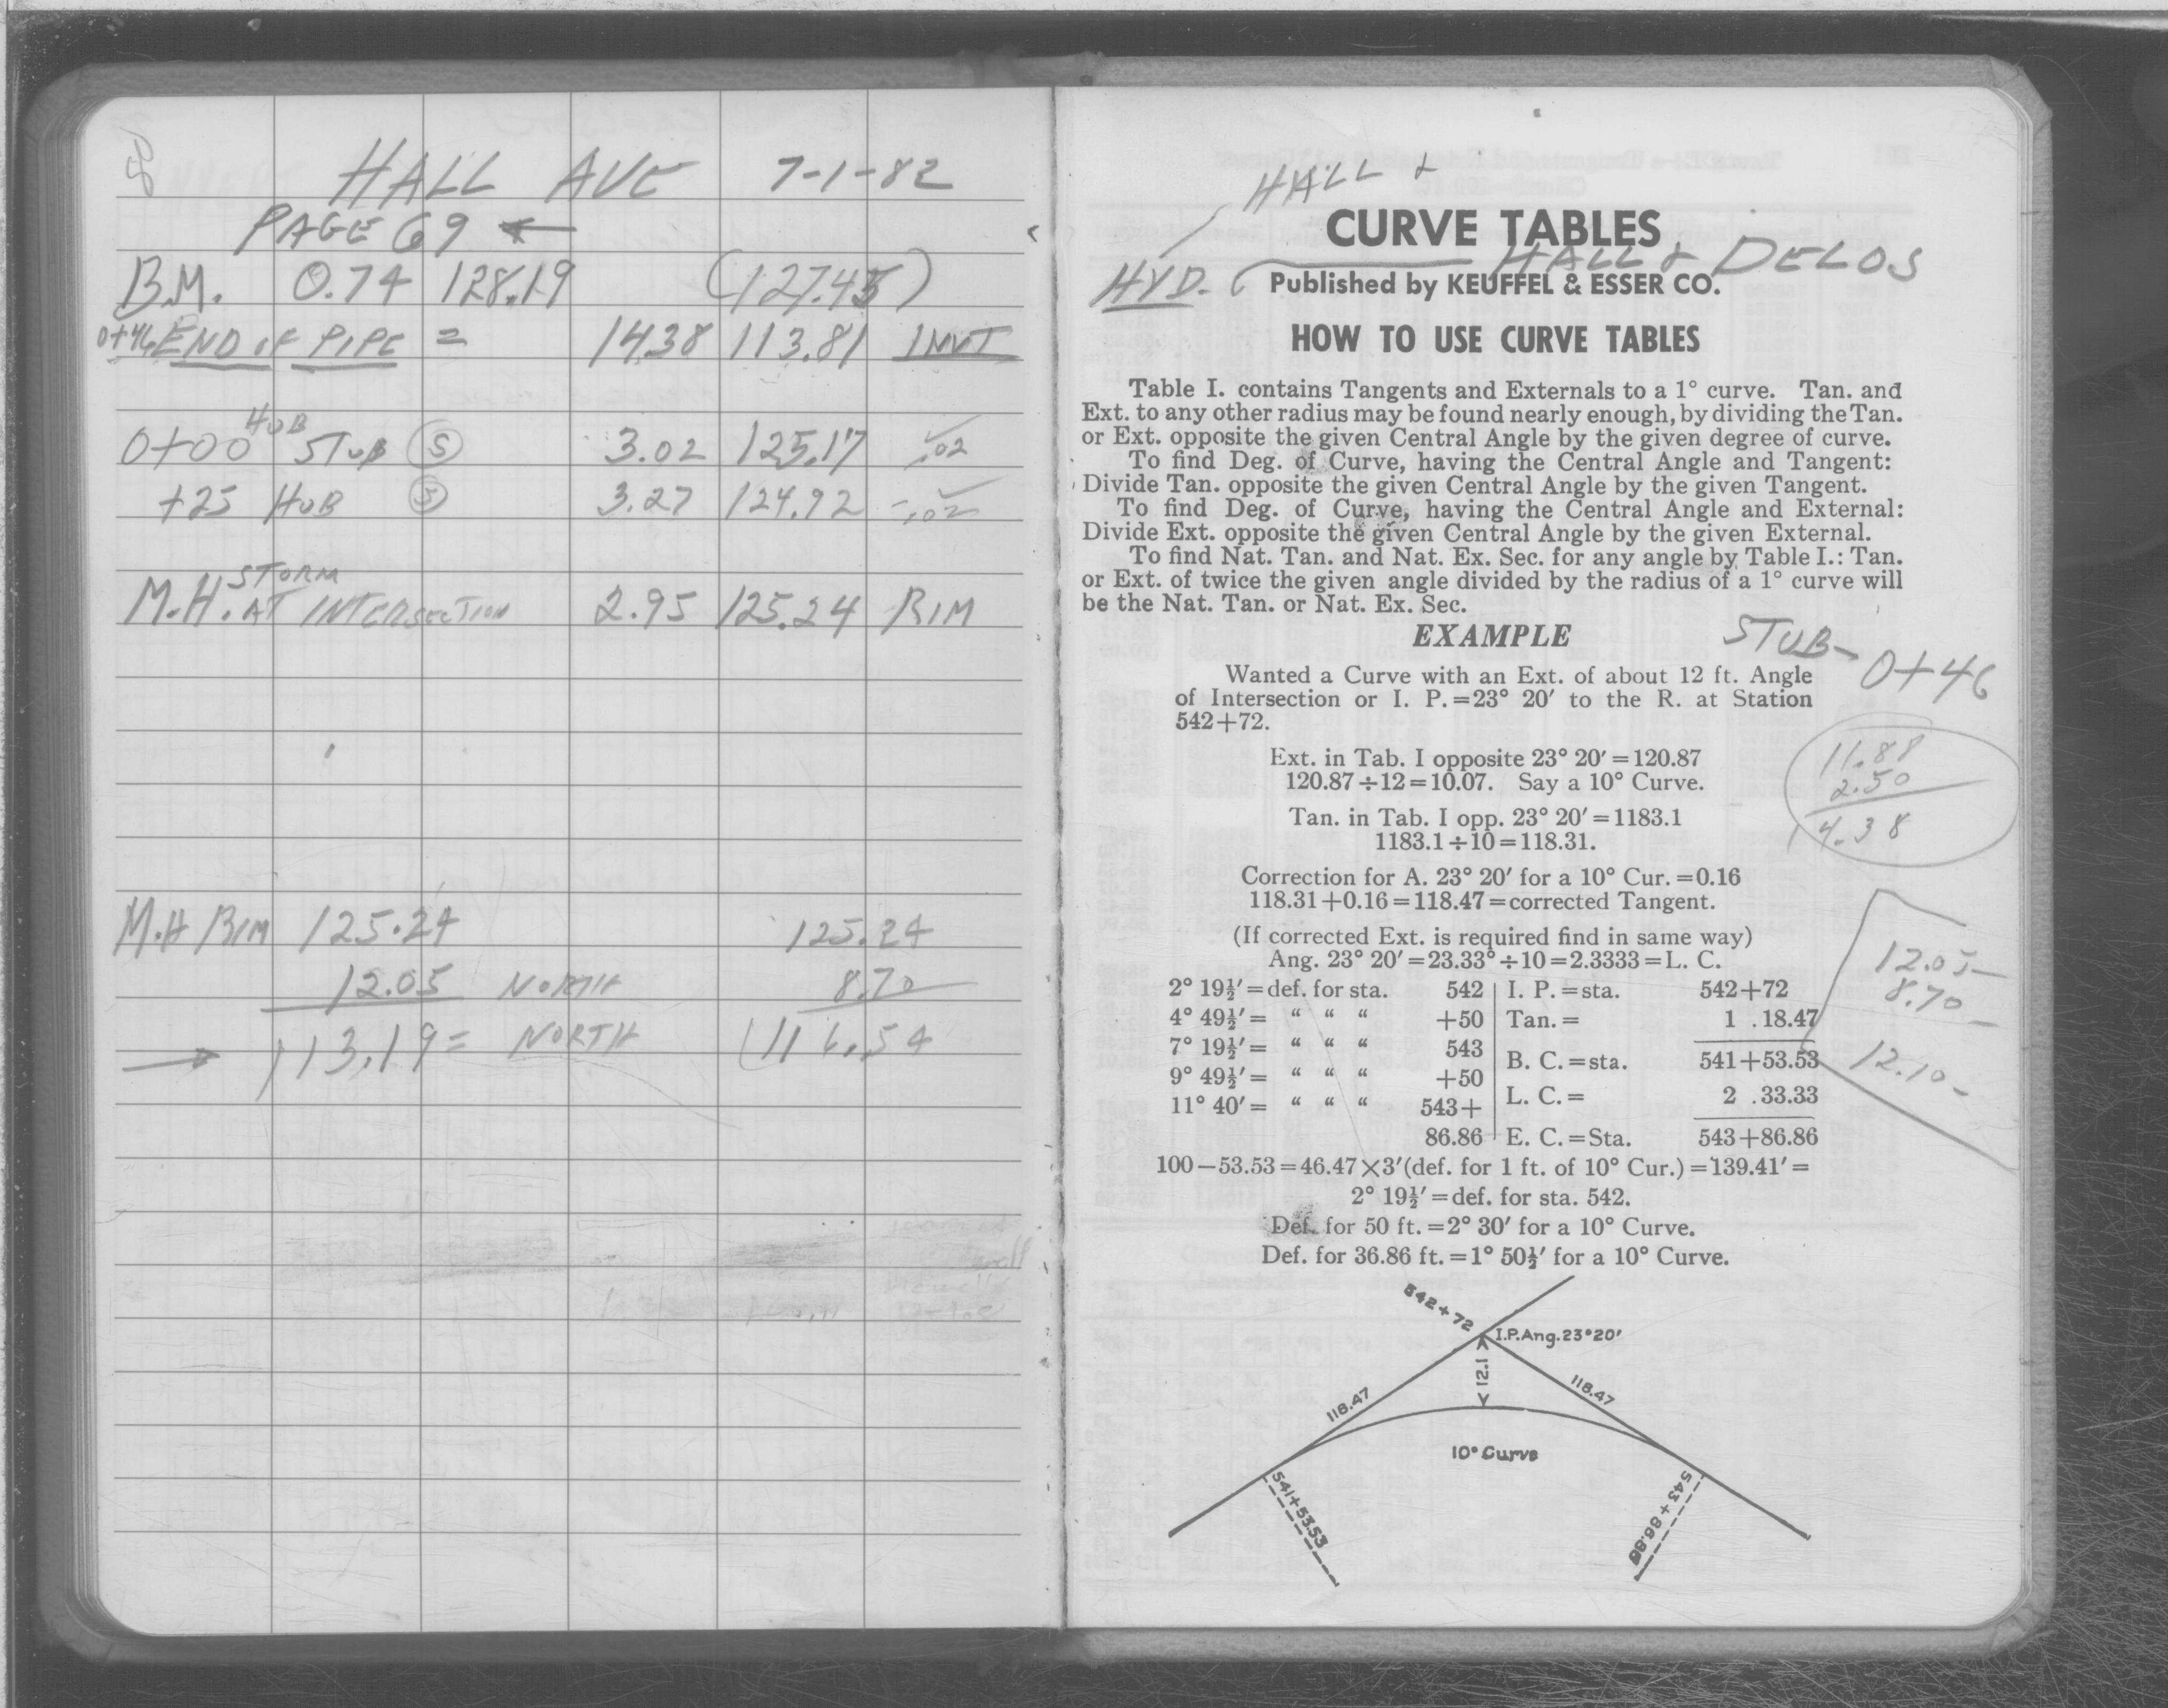 HALL AVE 7-1-82
PAGE 69 ←
B.M. 0.74 128.19 (127.45)
0+46 END OF PIPE = 14.38 113.81 INVT
HUB
0+00 STUB (S) 3.02 125.17 .02
+25 HUB (S) 3.27 124.92 -.02
STORM
M.H. AT INTERSECTION 2.95 125.24 RIM
M.H RIM 125.24 125.24
12.05 NORTH 8.70
→ 113.19 = NORTH 116.54
HALL &
CURVE TABLES
HALL & DELOS
HYD.
Published by KEUFFEL & ESSER CO.
HOW TO USE CURVE TABLES
Table I. contains Tangents and Externals to a 1° curve. Tan. and
Ext. to any other radius may be found nearly enough, by dividing the Tan.
or Ext. opposite the given Central Angle by the given degree of curve.
To find Deg. of Curve, having the Central Angle and Tangent:
Divide Tan. opposite the given Central Angle by the given Tangent.
To find Deg. of Curve, having the Central Angle and External:
Divide Ext. opposite the given Central Angle by the given External.
To find Nat. Tan. and Nat. Ex. Sec. for any angle by Table I.: Tan.
or Ext. of twice the given angle divided by the radius of a 1° curve will
be the Nat. Tan. or Nat. Ex. Sec.
EXAMPLE
STUB- 0+46
Wanted a Curve with an Ext. of about 12 ft. Angle
of Intersection or I. P.=23° 20′ to the R. at Station
542+72.
Ext. in Tab. I opposite 23° 20′=120.87
120.87÷12=10.07. Say a 10° Curve.
11.88
2.50
14.38
Tan. in Tab. I opp. 23° 20′=1183.1
1183.1÷10=118.31.
Correction for A. 23° 20′ for a 10° Cur.=0.16
118.31+0.16=118.47=corrected Tangent.
(If corrected Ext. is required find in same way)
Ang. 23° 20′=23.33°÷10=2.3333=L. C.
12.05-
8.70-
12.10-
2° 19½′=def. for sta. 542 I. P.=sta. 542+72
4° 49½′= “ “ “ +50 Tan.= 1 .18.47
7° 19½′= “ “ “ 543 B. C.=sta. 541+53.53
9° 49½′= “ “ “ +50 L. C.= 2 .33.33
11° 40′= “ “ “ 543+
86.86 E. C.=Sta. 543+86.86
100−53.53=46.47×3′(def. for 1 ft. of 10° Cur.)=139.41′=
2° 19½′=def. for sta. 542.
Def. for 50 ft.=2° 30′ for a 10° Curve.
Def. for 36.86 ft.=1° 50½′ for a 10° Curve.
542+72
I.P.Ang.23°20′
12.1
118.47
118.47
10° Curve
541+53.53
543+86.86